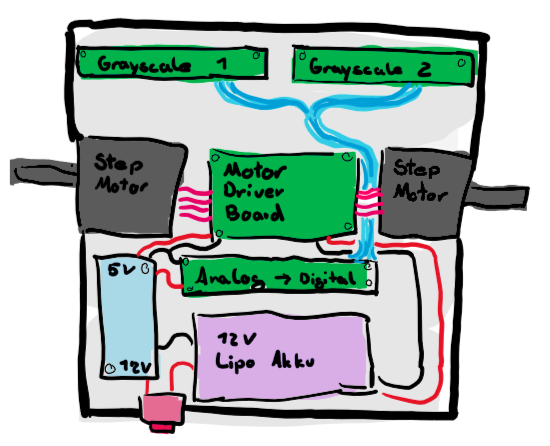 Grayscale 1
Grayscale 2
Step
Motor
Motor
Driver
Board
Step
Motor
5V
Analog → Digital
12V
12V
Lipo Akku